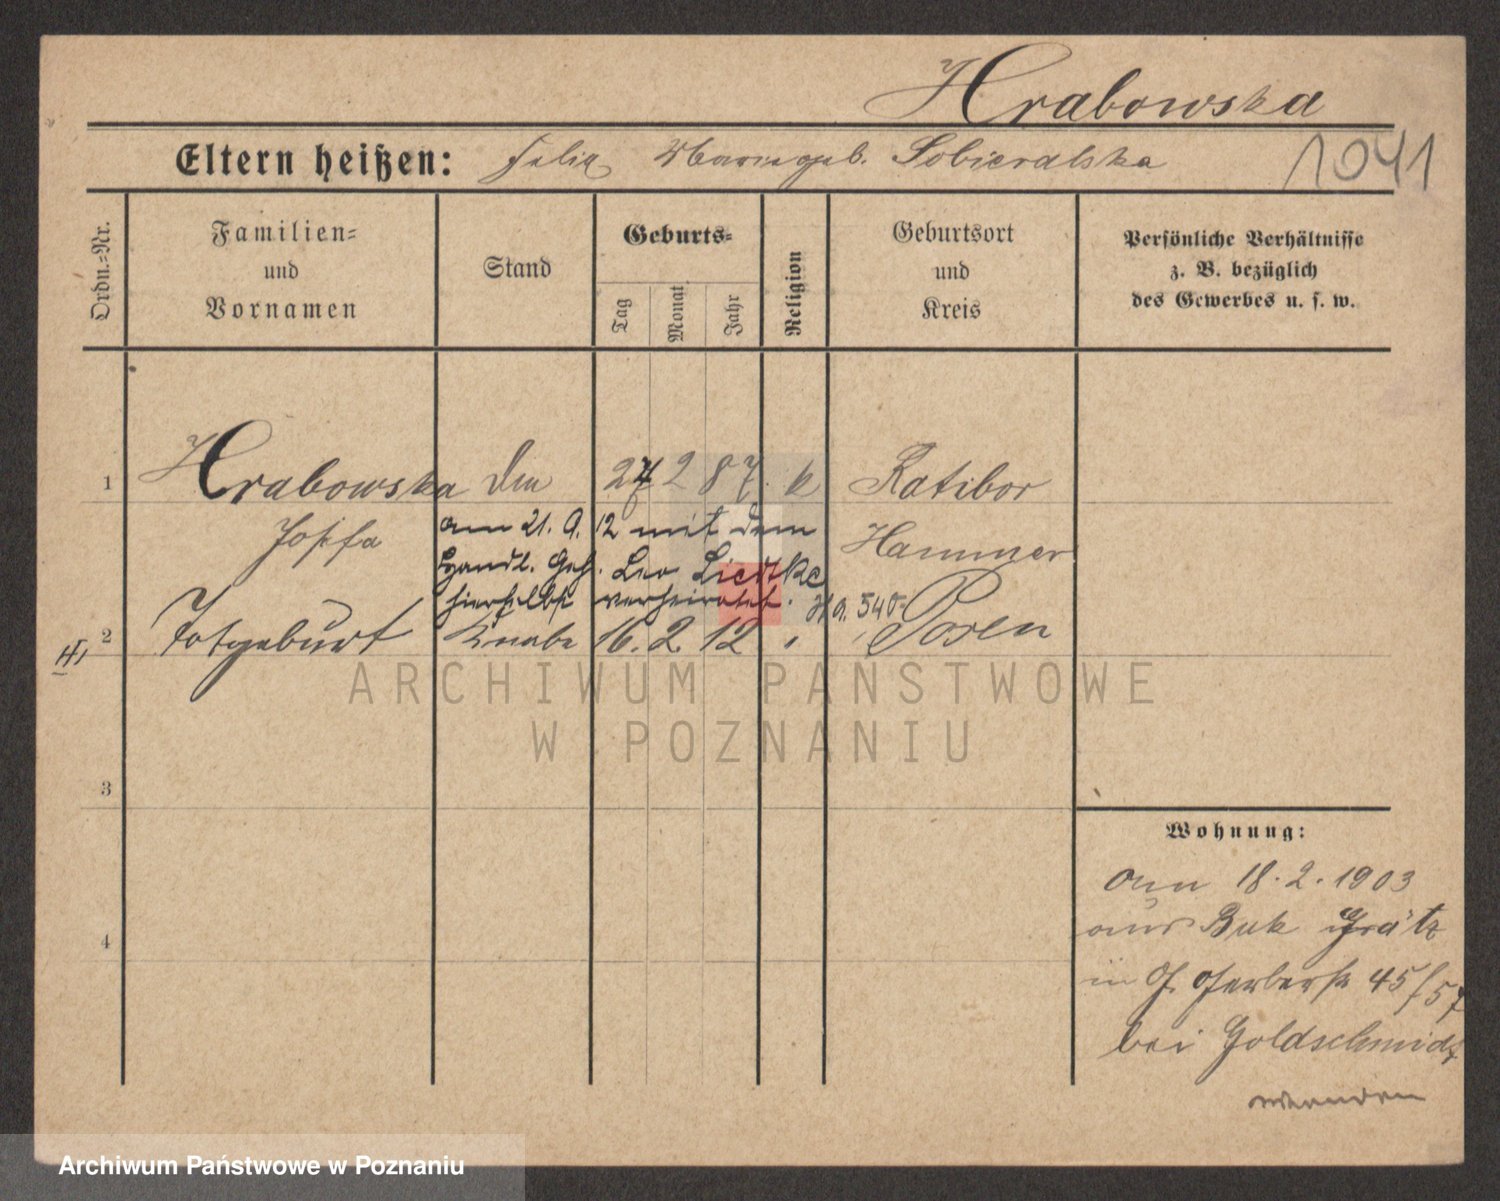 Hrabowska
1041
Eltern heißen: Felix Maria geb. Sobieralska
Ordn.-Nr.
Familien-
und
Vornamen
Stand
Geburts-
Tag
Monat
Jahr
Religion
Geburtsort
und
Kreis
Persönliche Verhältnisse
z. B. bezüglich
des Gewerbes u. s. w.
1 Hrabowska 27 2 87. k Ratibor
Josefa
Hammer
am 21. 9. 12 mit dem
Handl. Geh. Leo Liedtke
hierselbst verheiratet. 540
2 Totgeburt Knabe 16. 2. 12 " Posen
3
4
Wohnung:
Am 18. 2. 1903
aus Buk Grätz
in Gerberstr 45/57
bei Goldschmidt
wenden
ARCHIWUM PAŃSTWOWE
W POZNANIU
Archiwum Państwowe w Poznaniu